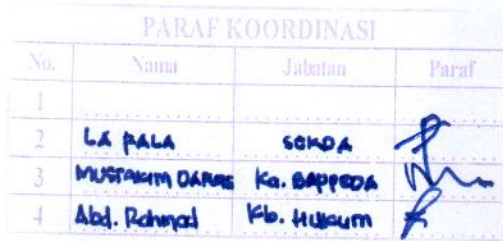 PARAF KOORDINASI
No. Nama Jabatan Paraf
1
2 LA PALA SEKDA
3 MUSTAKIM DARWIS Ka. BAPPEDA
4 Abd. Rahmad Kb. Hukum